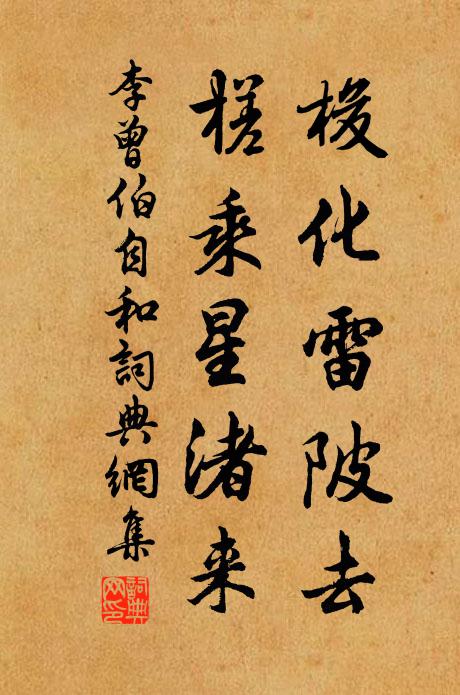 梭化雷陂去
槎乘星渚来
李曾伯自和詞典網集
詞典网印